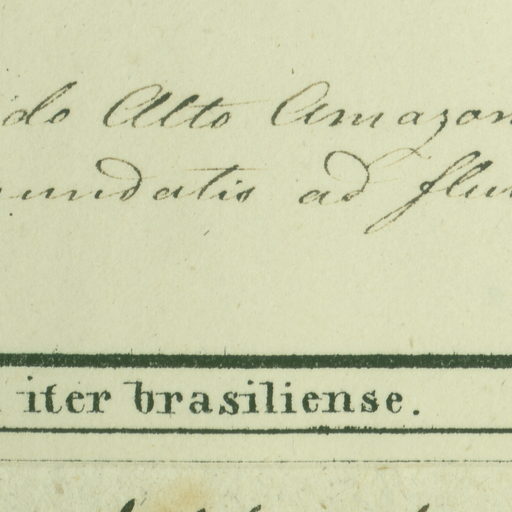 do Alto Amazon
undatis ad flu
iter brasiliense.